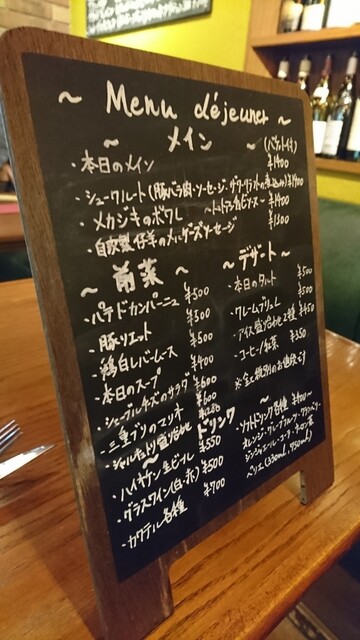 ~ Menu déjeuner ~
~ メイン ~ (バゲット付)
・本日のメイン ¥1400
・シュークルート(豚バラ肉・ソーセージ・ザワークラウトの煮込み) ¥1400
・メカジキのポワレ ¥1400
・自家製 仔羊のメルゲーズソーセージ ¥1300
~ 前菜 ~
・パテドカンパーニュ ¥500
・豚リエット ¥500
・鶏白レバームース ¥500
・本日のスープ ¥400
・シェーブルチーズのサラダ ¥600
・三重ブリのマリネ ¥600
・シャルキュトリ盛り合わせ
~ デザート ~
・本日のタルト ¥500
・クレームブリュレ ¥500
・アイス盛り合わせ2種 ¥450
・コーヒー/紅茶 ¥350
~ ドリンク ~
・ハイネケン生ビール ¥550
・グラスワイン(白・赤) ¥500
・カクテル各種 ¥700
・ソフトドリンク各種 ¥400~
オレンジ・グレープフルーツ・クランベリー
ジンジャエール・コーラ・ウーロン茶
ペリエ(330ml, 750ml)